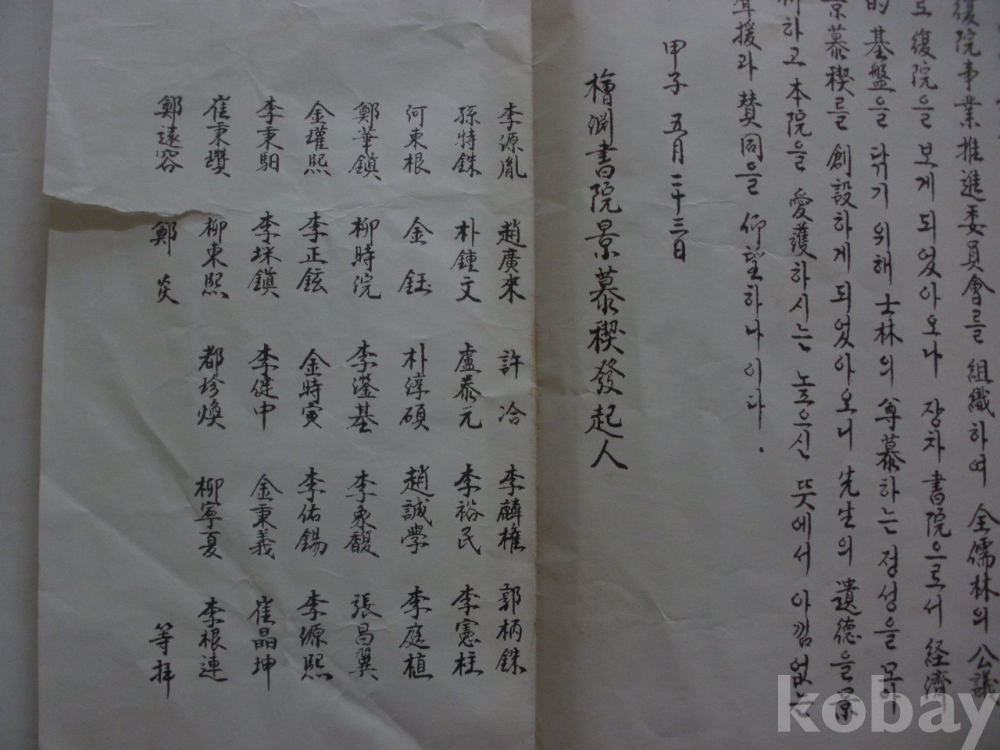 復院事業推進委員會를 組織하여 全儒林의 公議
도 復院을 보게 되었아오나 장차 書院으로서 経済
的 基盤을 닦기 위해 士林의 尊慕하는 정성을 모아
景慕稧를 創設하게 되었아오니 先生의 遺德을 景
하고 本院을 愛護하시는 높으신 뜻에서 아낌없는
援과 賛同을 仰望하나이다.
甲子 五月 二十三日
檜淵書院景慕稧發起人
李源胤 趙廣来 許洽 李麟權 郭柄銖
孫特銖 朴鍾文 盧泰元 李裕民 李憲柱
河東根 金鈺 朴淳碩 趙誠学 李庭植
鄭華鎭 柳時浣 李瀅基 李東馥 張昌翼
金瓘熙 李正鉉 金時寅 李佑錫 李源熙
李秉馹 李琜鎭 李健中 金秉義 崔晶坤
崔秉瓚 柳東熙 都珍煥 柳寧夏 李根連
鄭遠容 鄭炎 等拜
kobay